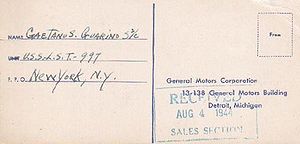 From
NAME GAETANO S. GUARINO S2/c
UNIT U.S.S. L.S.T. - 997
F. P. O. NEW YORK, N.Y.
General Motors Corporation
13-138 General Motors Building
Detroit, Michigan
RECEIVED
AUG 4 1944
SALES SECTION